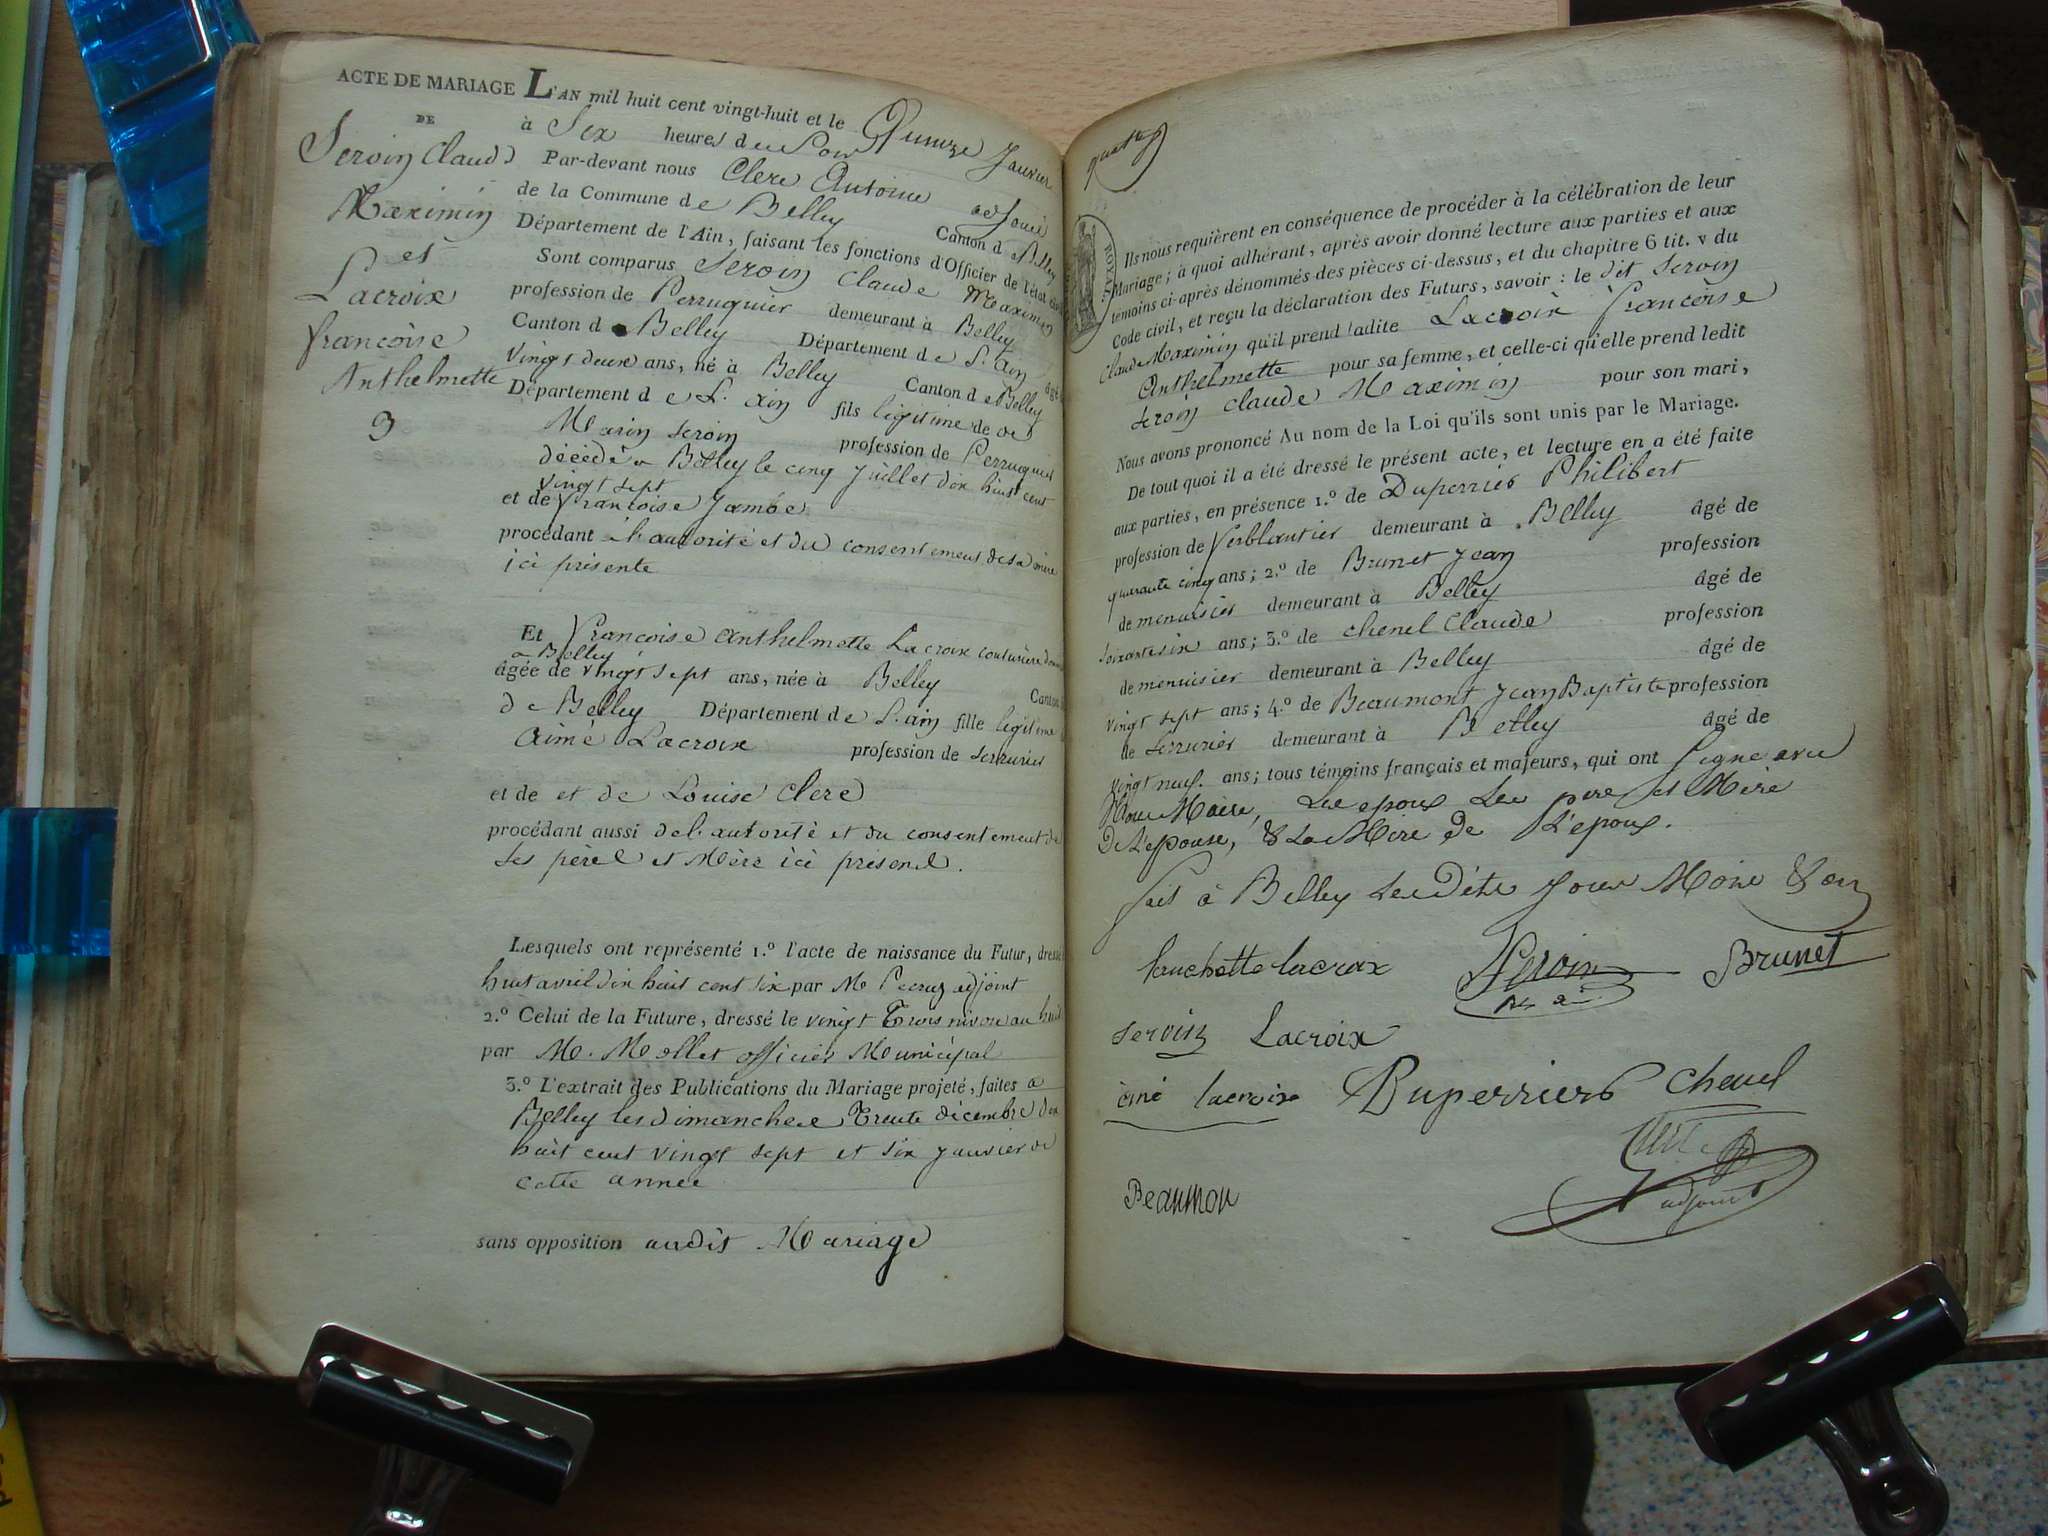 ACTE DE MARIAGE
DE
Servin Claude
Maximin
et
Lacroix
françoise
Anthelmette
3
L'AN mil huit cent vingt-huit et le Quinze Janvier
à Six heures du Soir
Par-devant nous Clerc Antoine adjoint
de la Commune de Belley Canton de Belley
Département de l'Ain, faisant les fonctions d'Officier de l'état
Sont comparus Servin Claude Maximin
profession de Perruquier demeurant à Belley
Canton de Belley Département de L'ain âgé
Vingt deux ans, né à Belley Canton de Belley
Département de L'ain fils légitime de
Marin Servin profession de Perruquier
décédé a Belley le cinq juillet dix huit cent
vingt sept
et de françoise Jambe
procédant à l'autorité et du consentement de sa mère
ici présente
Et françoise anthelmette Lacroix couturière
a Belley
âgée de vingt sept ans, née à Belley Canton
de Belley Département de L'ain fille légitime
Aimé Lacroix profession de serrurier
et de et de Louise Clerc
procédant aussi de l'autorité et du consentement de
ses père et Mère ici présend.
Lesquels ont représenté 1.º l'acte de naissance du Futur, dressé
huit avril dix huit cent six par Mr adjoint
2.º Celui de la Future, dressé le vingt Trois nivose an huit
par Mr. Mollet officier Municipal
3.º L'extrait des Publications du Mariage projeté, faites a
Belley les dimanche Trente décembre dix
huit cent vingt sept et six janvier de
cette année
sans opposition audit Mariage
ROYAL
Ils nous requièrent en conséquence de procéder à la célébration de leur
Mariage; à quoi adhérant, après avoir donné lecture aux parties et aux
témoins ci-après dénommés des pièces ci-dessus, et du chapitre 6 tit. v du
Code civil, et reçu la déclaration des Futurs, savoir: le dit Servin
Claude Maximin qu'il prend ladite Lacroix françoise
Anthelmette pour sa femme, et celle-ci qu'elle prend ledit
Servin Claude Maximin pour son mari,
Nous avons prononcé Au nom de la Loi qu'ils sont unis par le Mariage.
De tout quoi il a été dressé le présent acte, et lecture en a été faite
aux parties, en présence 1.º de Duperrier Philibert
profession de ferblantier demeurant à Belley âgé de
quarante cinq ans; 2.º de Brunet Jean profession
de menuisier demeurant à Belley âgé de
soixante six ans; 3.º de Chenel Claude profession
de menuisier demeurant à Belley âgé de
vingt sept ans; 4.º de Beaumont Jean Baptiste profession
de serrurier demeurant à Belley âgé de
vingt neuf. ans; tous témoins français et majeurs, qui ont Signé avec
Nous Maire, Les epoux Les pere et Mère
De L'epouse, & La Mère de L'epoux.
fait à Belley Les Dits Jour Mois & an
fanchette lacroix Servin Brunet
servin Lacroix
émé lacroix Duperrier Chenel
Clerc
adjoint
Beaumon